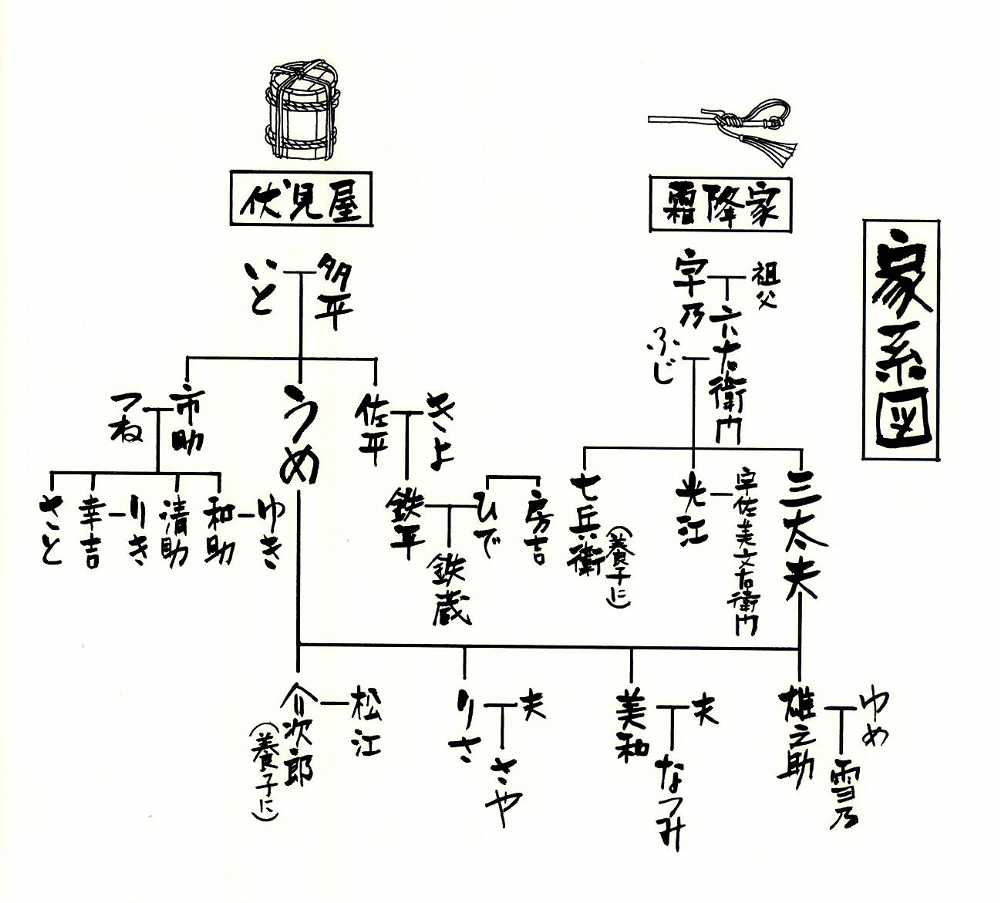 家系図
霜降家
祖父
宇乃
六右衛門
ふじ
三太夫
宇佐美文右衛門
光江
七兵衛
(養子に)
伏見屋
多平
いと
きよ
佐平
うめ
市助
つね
房吉
ひで
鉄平
鉄蔵
ゆき
和助
清助
りき
幸吉
さと
ゆめ
雄之助
雪乃
夫
美和
なつみ
夫
りさ
さや
松江
介次郎
(養子に)